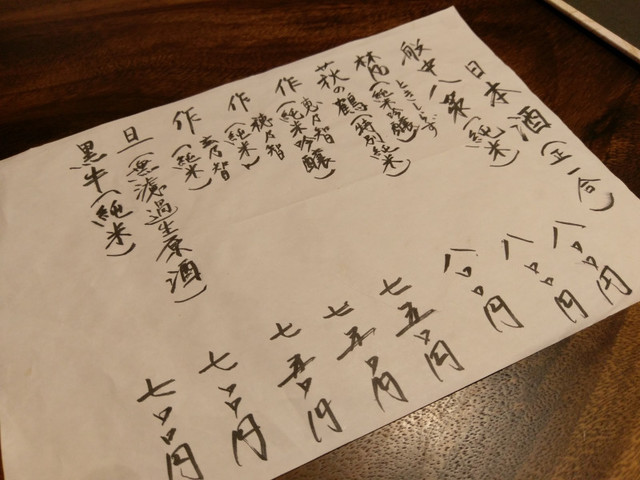 日本酒(正一合)
船中八策(純米) 八〇〇円
梵 ときしらず(純米吟醸) 八〇〇円
萩の鶴(特別純米) 八〇〇円
作 恵乃智(純米吟醸) 七五〇円
作 穂乃智(純米) 七五〇円
作 玄乃智(純米) 七五〇円
旦(無濾過生原酒) 七〇〇円
黒牛(純米) 七〇〇円